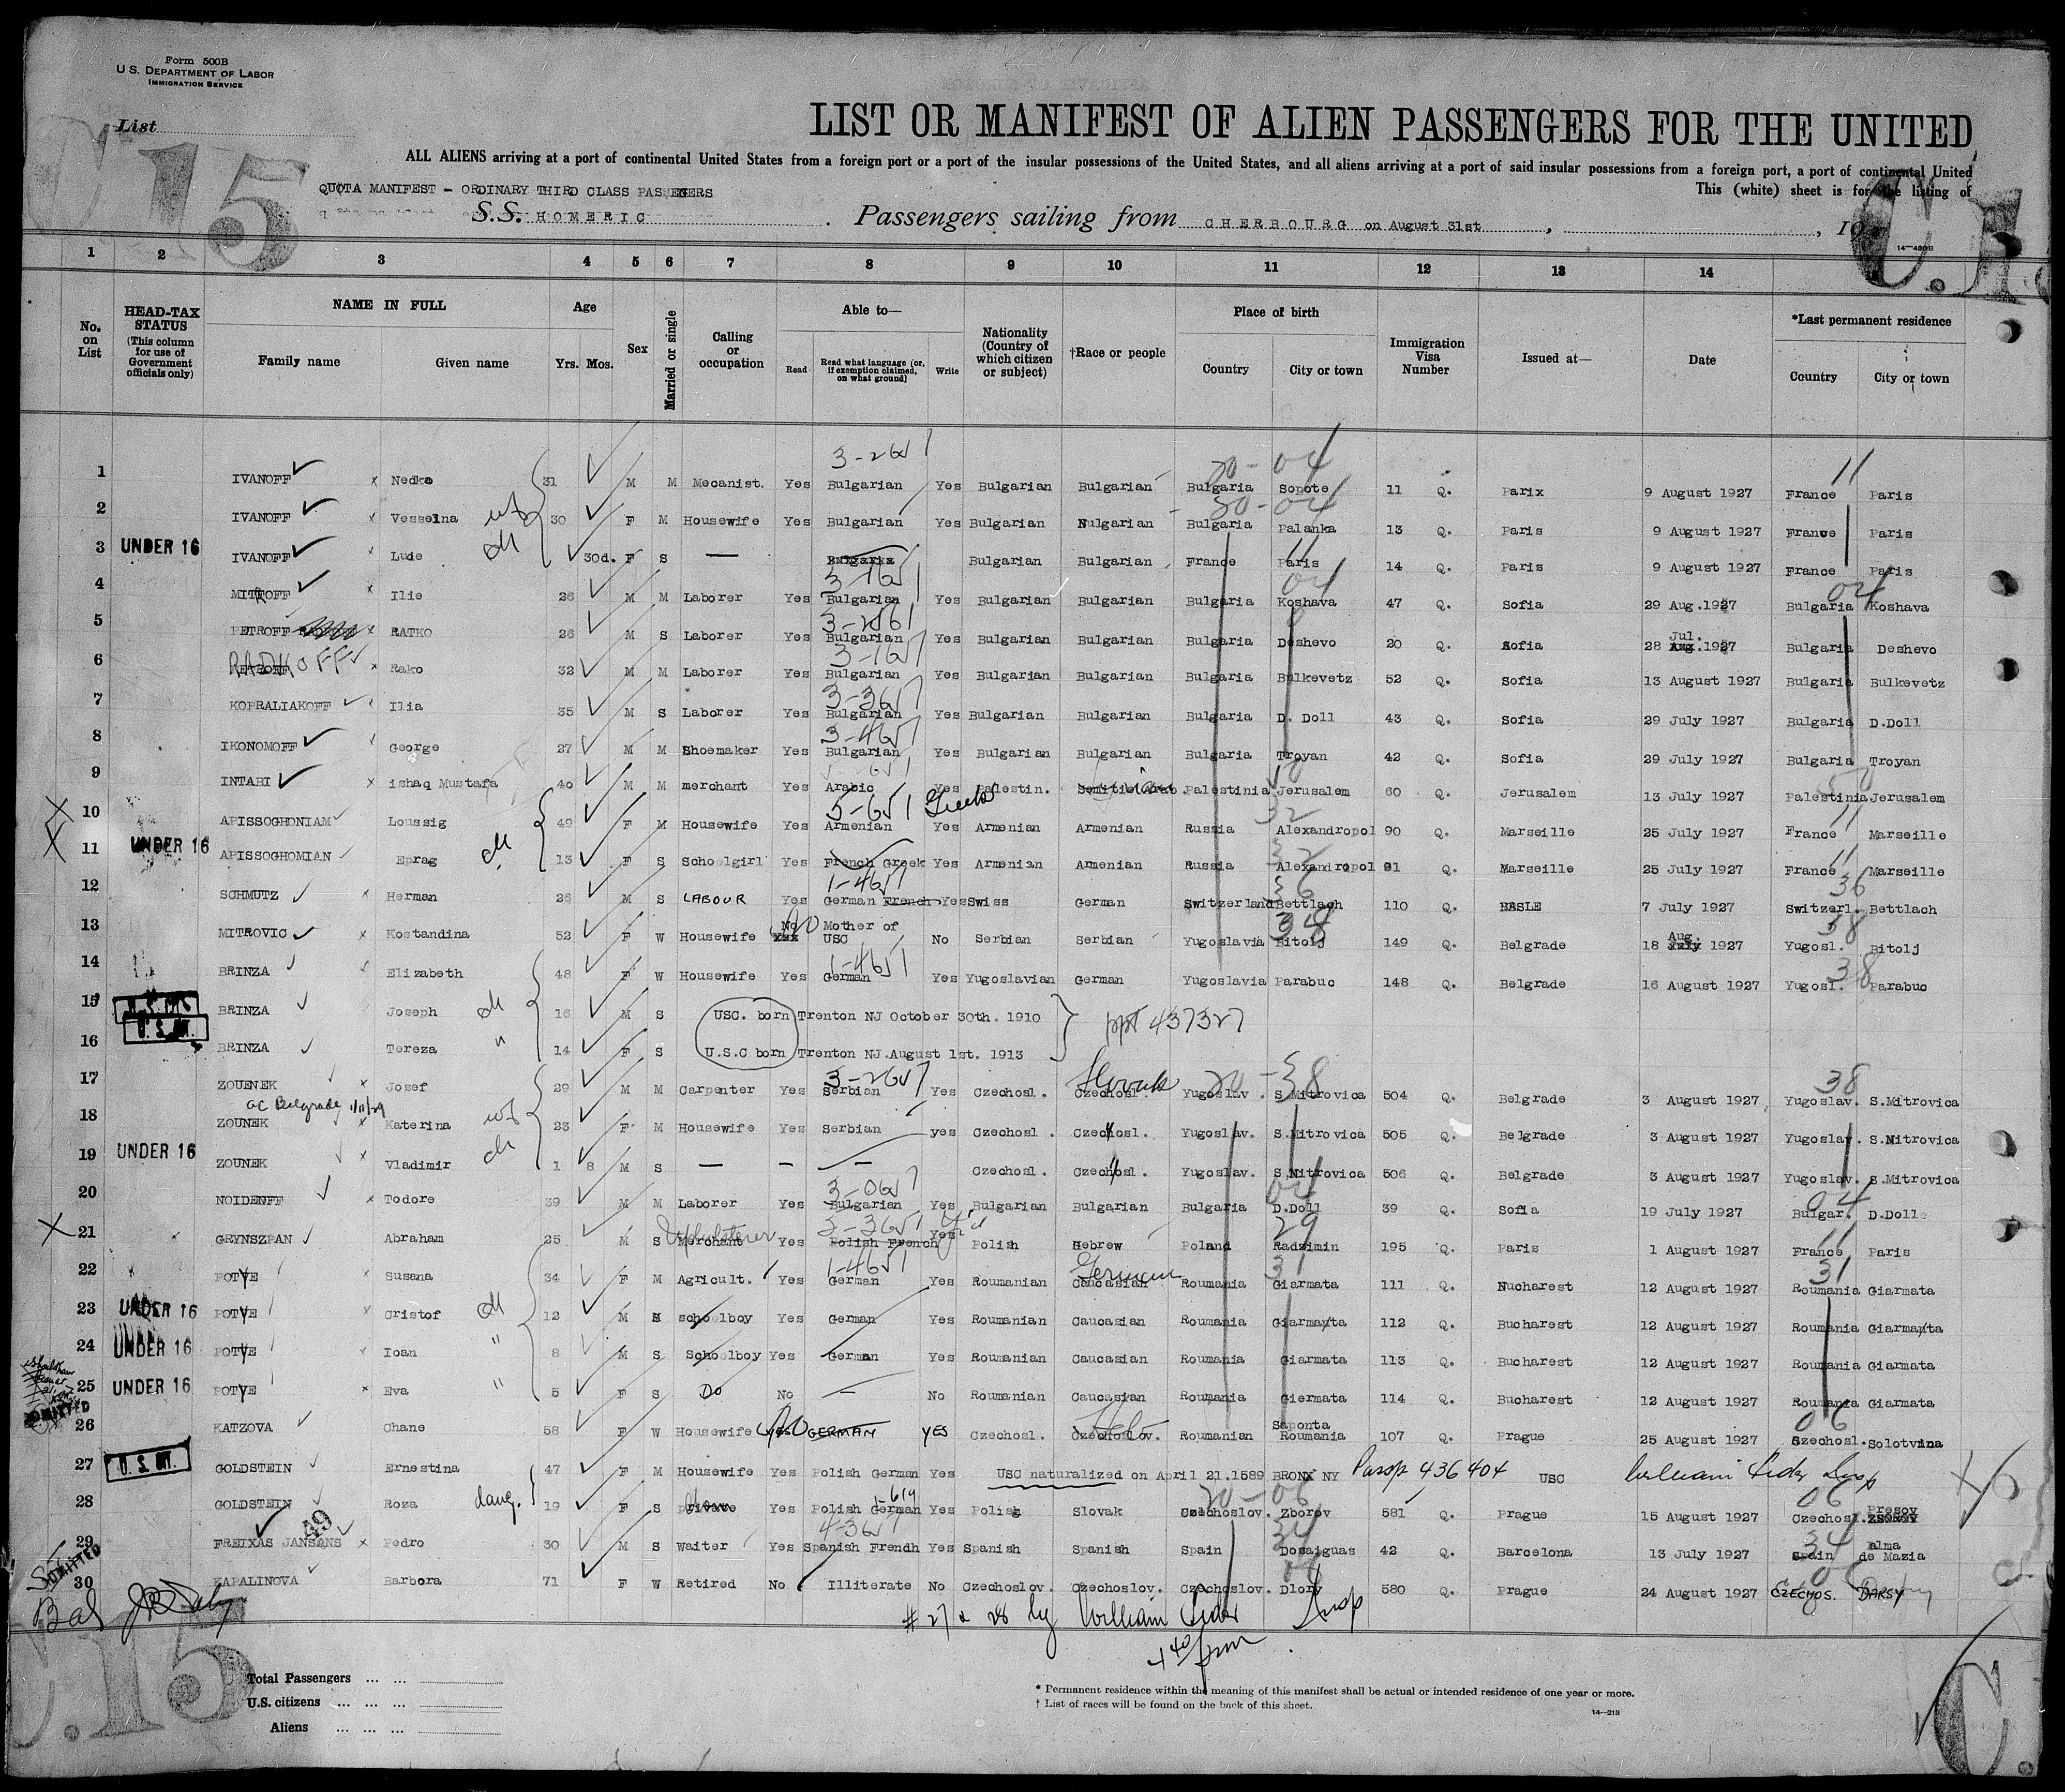 Form 500B
U. S. DEPARTMENT OF LABOR
IMMIGRATION SERVICE
List
C.15
LIST OR MANIFEST OF ALIEN PASSENGERS FOR THE UNITED
ALL ALIENS arriving at a port of continental United States from a foreign port or a port of the insular possessions of the United States, and all aliens arriving at a port of said insular possessions from a foreign port, a port of continental United
QUOTA MANIFEST - ORDINARY THIRD CLASS PASSENGERS
This (white) sheet is for the listing of
S.S. HOMERIC Passengers sailing from CHERBOURG on August 31st , , 19
14-480B
1 2 3 4 5 6 7 8 9 10 11 12 13 14
No. on List
HEAD-TAX STATUS (This column for use of Government officials only)
NAME IN FULL
Family name Given name
Age
Yrs. Mos.
Sex
Married or single
Calling or occupation
Able to—
Read Read what language (or, if exemption claimed, on what ground) Write
Nationality (Country of which citizen or subject)
†Race or people
Place of birth
Country City or town
Immigration Visa Number
Issued at—
Date
*Last permanent residence
Country City or town
1 IVANOFF x Nedko 31 M M Mecanist. Yes Bulgarian Yes Bulgarian Bulgarian Bulgaria Sopote 11 Q. Parix 9 August 1927 France Paris
2 IVANOFF x Vesselna wf 30 F M Housewife Yes Bulgarian Yes Bulgarian Nulgarian Bulgaria Palanka 13 Q. Paris 9 August 1927 France Paris
3 UNDER 16 IVANOFF Lude ch 30d. F S — Bulgaria Bulgarian Bulgarian France Paris 14 Q. Paris 9 August 1927 France Paris
4 MITROFF x Ilie 26 M M Laborer Yes Bulgarian Yes Bulgarian Bulgarian Bulgaria Koshava 47 Q. Sofia 29 Aug.1927 Bulgaria Koshava
5 PETROFF x RATKO 26 M S Laborer Yes Bulgarian Yes Bulgarian Bulgarian Bulgaria Deshevo 20 Q. Sofia 28 Jul. 1927 Bulgaria Deshevo
6 RADKOFF x Rako 32 M M Laborer Yes Bulgarian Yes Bulgarian Bulgarian Bulgaria Bulkevetz 52 Q. Sofia 13 August 1927 Bulgaria Bulkevetz
7 KOPRALIAKOFF Ilia 35 M S Laborer Yes Bulgarian Yes Bulgarian Bulgarian Bulgaria D. Doll 43 Q. Sofia 29 July 1927 Bulgaria D.Doll
8 IKONOMOFF George 27 M M Shoemaker Yes Bulgarian Yes Bulgarian Bulgarian Bulgaria Troyan 42 Q. Sofia 29 July 1927 Bulgaria Troyan
9 INTABI x ishaq Mustafa 40 M M merchant Yes Arabic Yes Palestin. Palestinia Jerusalem 60 Q. Jerusalem 13 July 1927 Palestinia Jerusalem
10 APISSOGHONIAM Loussig 49 F M Housewife Yes Armenian Greek Yes Armenian Armenian Russia Alexandropol 90 Q. Marseille 25 July 1927 France Marseille
11 UNDER 16 APISSOGHOMIAN Eprag ch 13 F S Schoolgirl Yes French Greek Yes Armenian Armenian Russia Alexandropol 91 Q. Marseille 25 July 1927 France Marseille
12 SCHMUTZ x Herman 26 M S LABOUR Yes German French Yes Swiss German Switzerland Bettlach 110 Q. BASLE 7 July 1927 Switzerl. Bettlach
13 MITROVIC x Kostandina 52 F W Housewife No Mother of USC No Serbian Serbian Yugoslavia Bitolj 149 Q. Belgrade 18 Aug. 1927 Yugosl. Bitolj
14 BRINZA Elizabeth 48 F W Housewife Yes German Yes Yugoslavian German Yugoslavia Parabuc 148 Q. Belgrade 16 August 1927 Yugosl. Parabuc
15 U.S. CIT. BRINZA Joseph ch 16 M S USC. born Trenton NJ October 30th. 1910 ppt 437327
16 BRINZA Tereza " 14 F S U.S.C born Trenton NJ.August 1st. 1913
17 ZOUENEK x Josef 29 M M Carpenter Yes Serbian Yes Czechosl. Czechosl. Slovak Yugoslv. S.Mitrovica 504 Q. Belgrade 3 August 1927 Yugoslav. S.Mitrovica
18 ZOUNEK x Katerina wf 23 F M Housewife Yes Serbian yes Czechosl. Czechosl. Yugoslav. S.Mitrovica 505 Q. Belgrade 3 August 1927 Yugoslav. S.Mitrovica
19 UNDER 16 ZOUNEK x Vladimir ch 1 8 M S — — — Czechosl. Czechosl. Yugoslav. S.Mitrovica 506 Q. Belgrade 3 August 1927 Yugoslav. S.Mitrovica
20 NOIDENFF x Todore 39 M M Laborer Yes Bulgarian Yes Bulgarian Bulgarian Bulgaria D.Doll 39 Q. Sofia 19 July 1927 Bulgar. D.Doll
21 GRYNSZPAN Abraham 25 M S Merchant Upholsterer Yes Polish French Yes Polish Hebrew Poland Radzimin 195 Q. Paris 1 August 1927 France Paris
22 POTYE x Susana 34 F M Agricult. Yes German Yes Roumanian Caucasian German Roumania Giarmata 111 Q. Nucharest 12 August 1927 Roumania Giarmata
23 UNDER 16 POTYE x Cristof ch 12 M S schoolboy Yes German Yes Roumanian Caucasian Roumania Giarmanta 112 Q. Bucharest 12 August 1927 Roumania Giarmanta
24 UNDER 16 POTYE Ioan " 8 M S Schoolboy Yes German Yes Roumanian Caucasian Roumania Giarmata 113 Q. Bucharest 12 August 1927 Roumania Giarmata
25 UNDER 16 POTYE x Eva " 5 F S Do No — No Roumanian Caucasian Roumania Giermata 114 Q. Bucharest 12 August 1927 Roumania Giarmata
26 KATZOVA Chane 58 F W Housewife No GERMAN YES Czechosl. Czechoslov. Roumanian Saponta Roumania 107 Q. Prague 25 August 1927 Czechosl. Solotvina
27 U.S. CIT. GOLDSTEIN Ernestina 47 F M Housewife Yes Polish German Yes USC naturalized on April 21.1589 BRONX NY Passp 436404 USC
28 GOLDSTEIN Roza daug. 19 F S private Yes Polish German Yes Polish Slovak Czechoslov. Zborov 581 Q. Prague 15 August 1927 Czechosl. Presov
29 FREIXAS JANSANS x Pedro 30 M S Waiter Yes Spanish Frendh Yes Spanish Spanish Spain Dosaiguas 42 Q. Barcelona 13 July 1927 Spain Palma de Mazia
30 KAPALINOVA Barbora 71 F W Retired No Illiterate No Czechoslov. Czechoslov. Czechoslov. Dlory 580 Q. Prague 24 August 1927 CZECHOS. DARSY
# 27 & 28 by William
C.15
Total Passengers ... ...
U.S. citizens ... ... ...
Aliens ... ... ...
* Permanent residence within the meaning of this manifest shall be actual or intended residence of one year or more.
† List of races will be found on the back of this sheet.
14-213